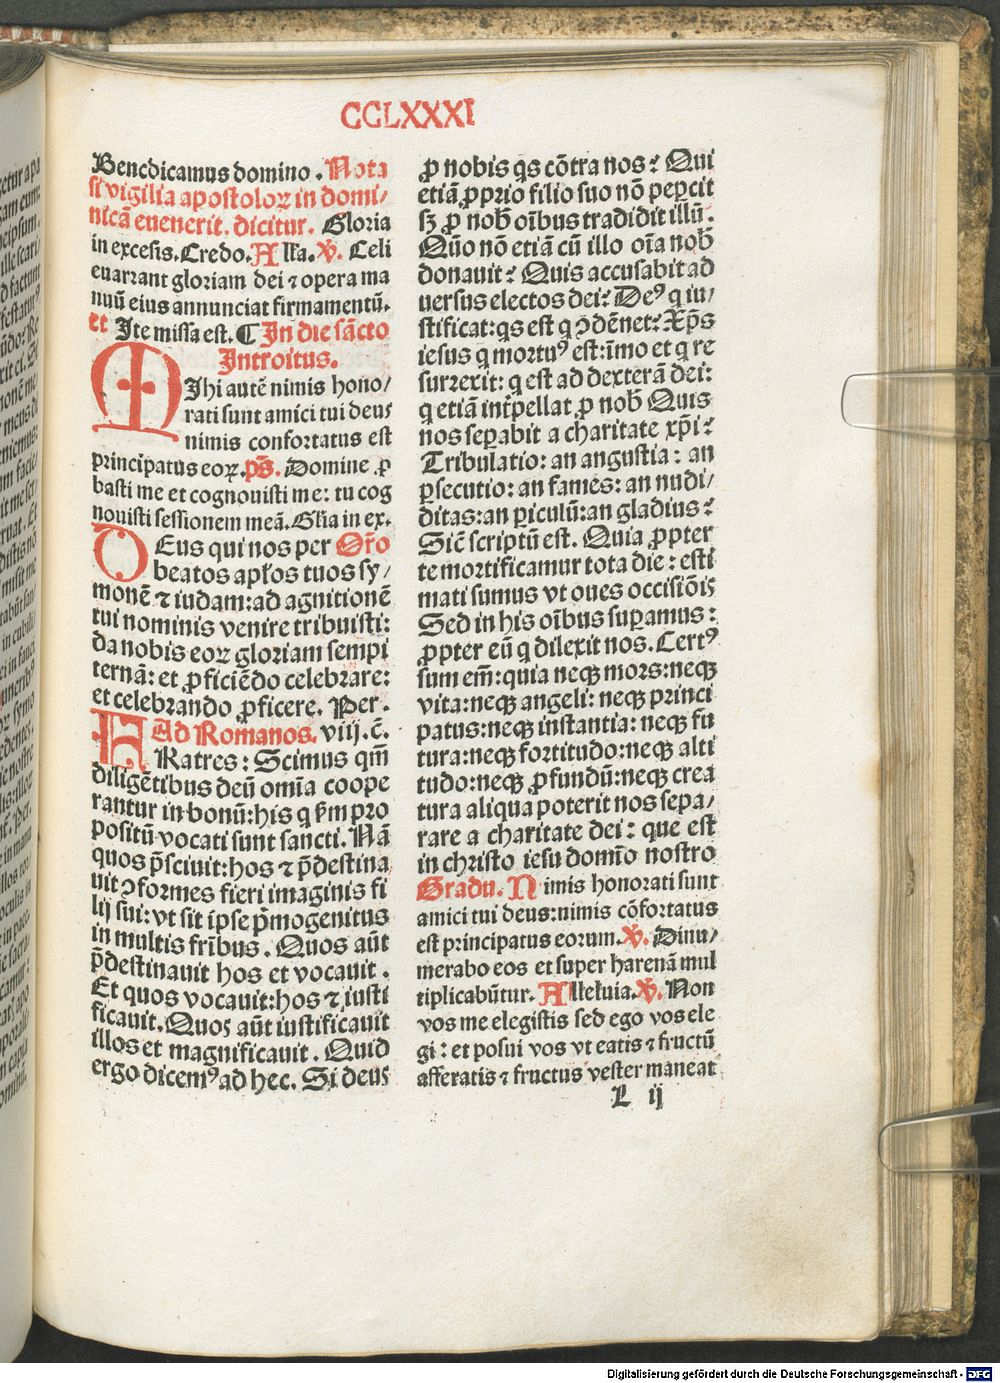 CCLXXXI
Benedicamus domino . Nota
si vigilia apostoloꝝ in domi/
nicā euenerit. dicitur. Gloria
in excelsis. Credo. Allꝛa. ℣. Celi
enarrant gloriam dei ⁊ opera ma
nuū eius annunciat firmamentū.
et Ite missa est. ¶ In die sācto
Introitus.
MIhi autē nimis hono/
rati sunt amici tui deus
nimis confortatus est
principatus eoꝝ. ps̄. Domine ꝓ
basti me et cognouisti me: tu cog
nouisti sessionem meā. Gl̄ia in ex.
DEus qui nos per Or̄o
beatos apl̄os tuos sy/
monē ⁊ iudam: ad agnitionē
tui nominis venire tribuisti:
da nobis eoꝝ gloriam sempi
ternā: et ꝓficiēdo celebrare:
et celebrando ꝓficere. Per.
Ad Romanos. viij. c̄.
FRatres: Scimus qm̄
diligētibus deū omīa coope
rantur in bonū: his q ẜm pro
positū vocati sunt sancti. Nā
quos p̄sciuit: hos ⁊ p̄destina
uit ꝯformes fieri imaginis fi
lij sui: vt sit ipse p̄mogenitus
in multis fr̄ibus. Quos aūt
p̄destinauit hos et vocauit.
Et quos vocauit: hos ⁊ iusti
ficauit. Quos aūt iustificauit
illos et magnificauit. Quid
ergo dicemꝰ ad hec. Si deus
ꝓ nobis qs cōtra nos? Qui
etiā ꝓprio filio suo nō peꝑcit
sꝫ ꝓ nob̄ oībus tradidit illū.
Quō nō etiā cū illo oīa nob̄
donauit? Quis accusabit ad
uersus electos dei? Deꝰ q iu/
stificat: qs est q ꝯdēnet? Xp̄s
iesus q mortuꝰ est: īmo et q re
surrexit: q est ad dexterā dei:
q etiā int̄pellat ꝓ nob̄ Quis
nos seꝑabit a charitate xp̄i?
Tribulatio: an angustia: an
ꝑsecutio: an fames: an nudi/
ditas: an ꝑiculū: an gladius?
Sic̄ scriptū est. Quia ꝓpter
te mortificamur tota die: esti
mati sumus vt oues occisiōis
Sed in his oībus suꝑamus:
ꝓpter eū q dilexit nos. Certꝰ
sum em̄: quia neqꝫ mors: neqꝫ
vita: neqꝫ angeli: neqꝫ princi
patus: neqꝫ instantia: neqꝫ fu
tura: neqꝫ fortitudo: neqꝫ alti
tudo: neqꝫ ꝓfundū: neqꝫ crea
tura aliqua poterit nos sepa/
rare a charitate dei: que est
in christo iesu domīo nostro
Gradu. Nimis honorati sunt
amici tui deus: nimis cōfortatus
est principatus eorum. ℣. Dinu/
merabo eos et super harenā mul
tiplicabūtur. Alleluia. ℣. Non
vos me elegistis sed ego vos ele
gi: et posui vos vt eatis ⁊ fructū
afferatis ⁊ fructus vester maneat
L ij
Digitalisierung gefördert durch die Deutsche Forschungsgemeinschaft - DFG